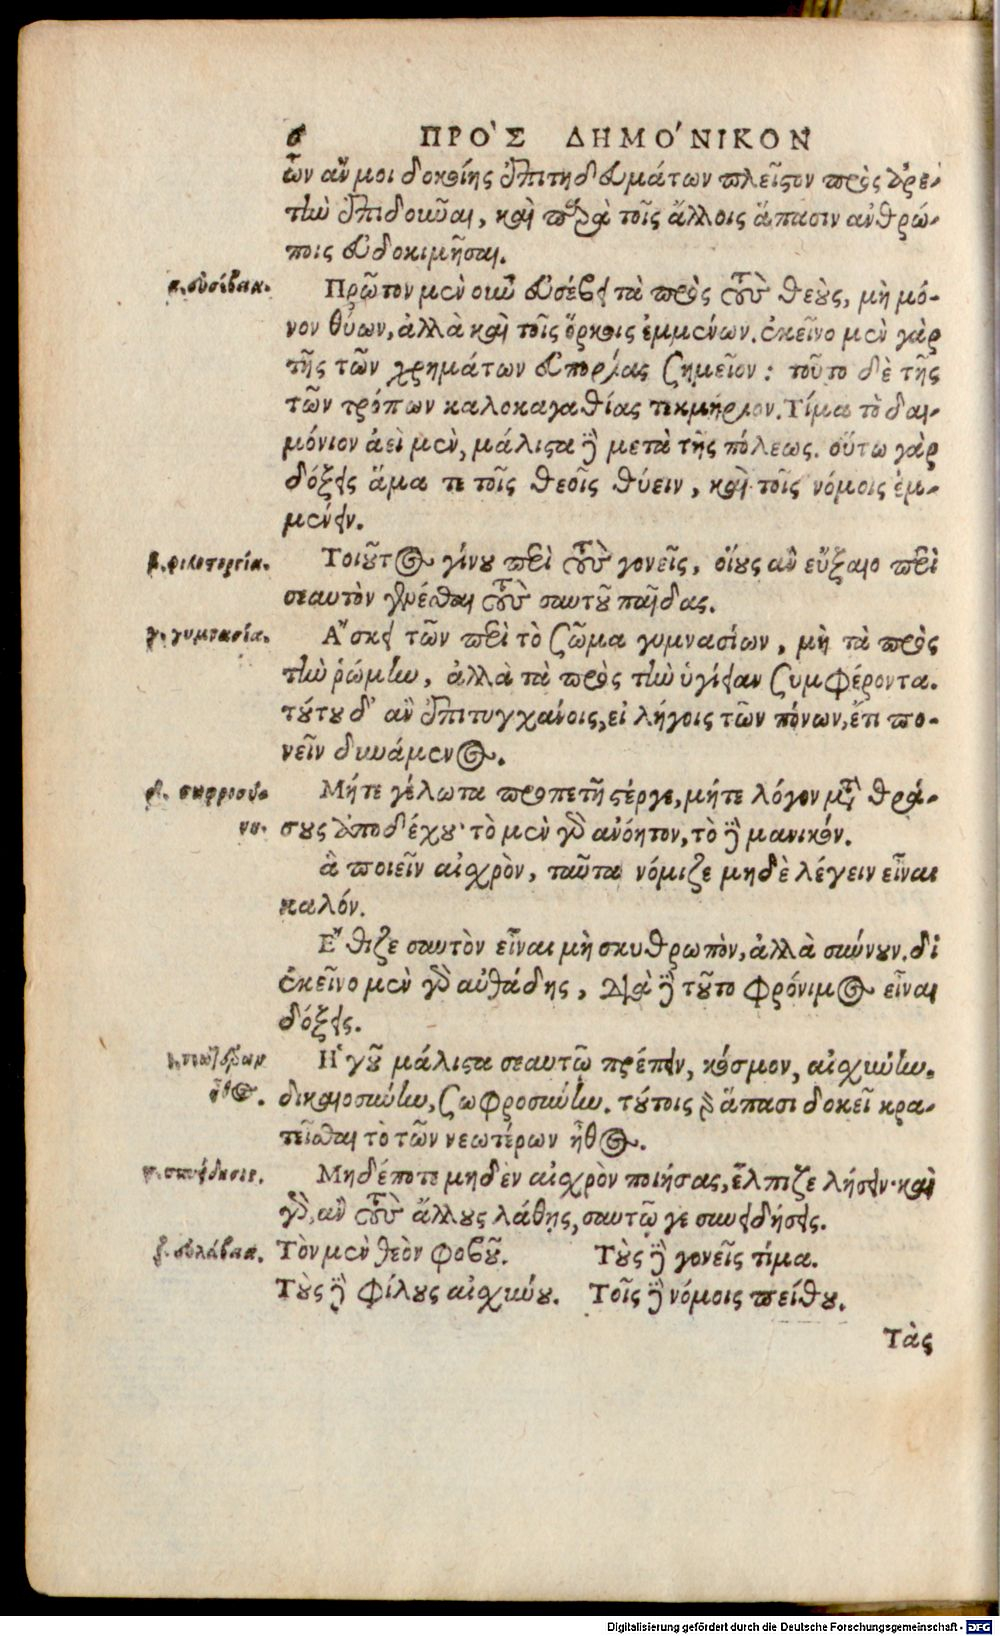 6 ΠΡΟ`Σ ΔΗΜΟ´ΝΙΚΟΝ
ὧν ἄν μοι δοκοίης ἐπιτηδευμάτων πλεῖστον πρὸς ἀρε-
τὴν ἐπιδοῦναι, καὶ παρὰ τοῖς ἄλλοις ἅπασιν ἀνθρώ-
ποις εὐδοκιμῆσαι.
α. εὐσέβεια.
Πρῶτον μὲν οὖν εὐσέβει τὰ πρὸς τοὺς θεοὺς, μὴ μό-
νον θύων, ἀλλὰ καὶ τοῖς ὅρκοις ἐμμένων. ἐκεῖνο μὲν γὰρ
τῆς τῶν χρημάτων εὐπορίας σημεῖον: τοῦτο δὲ τῆς
τῶν τρόπων καλοκαγαθίας τεκμήριον. Τίμα τὸ δαι-
μόνιον ἀεὶ μὲν, μάλιστα δὲ μετὰ τῆς πόλεως. οὕτω γὰρ
δόξεις ἅμα τε τοῖς θεοῖς θύειν, καὶ τοῖς νόμοις ἐμ-
μένειν.
β. φιλοστοργία.
Τοιοῦτος γίνου περὶ τοὺς γονεῖς, οἵους ἂν εὔξαιο περὶ
σεαυτὸν γενέσθαι τοὺς σαυτοῦ παῖδας.
γ. γυμνασία.
Α῎σκει τῶν περὶ τὸ σῶμα γυμνασίων, μὴ τὰ πρὸς
τὴν ῥώμην, ἀλλὰ τὰ πρὸς τὴν ὑγίειαν συμφέροντα.
τούτου δ' ἂν ἐπιτυγχάνοις, εἰ λήγοις τῶν πόνων, ἔτι πο-
νεῖν δυνάμενος.
δ. σωφροσύ-
νη.
Μήτε γέλωτα προπετῆ στέργε, μήτε λόγον μετὰ θρά-
σους ἀποδέχου· τὸ μὲν γὰρ ἀνόητον, τὸ δὲ μανικόν.
ἃ ποιεῖν αἰσχρὸν, ταῦτα νόμιζε μηδὲ λέγειν εἶναι
καλόν.
Ε῎θιζε σαυτὸν εἶναι μὴ σκυθρωπὸν, ἀλλὰ σύννουν. δι
ἐκεῖνο μὲν γὰρ αὐθάδης, διὰ δὲ τοῦτο φρόνιμος εἶναι
δόξεις.
ε. νεωτέρων
ἦθος.
Η῾γοῦ μάλιστα σεαυτῷ πρέπειν, κόσμον, αἰσχύνην.
δικαιοσύνην, σωφροσύνην. τούτοις γὰρ ἅπασι δοκεῖ κρα-
τεῖσθαι τὸ τῶν νεωτέρων ἦθος.
ς. συνείδησις.
Μηδέποτε μηδὲν αἰσχρὸν ποιήσας, ἔλπιζε λήσειν· καὶ
γὰρ, ἂν τοὺς ἄλλους λάθης, σαυτῷ γε συνειδήσεις.
ζ. εὐλάβεια.
Τὸν μὲν θεὸν φοβοῦ. Τοὺς δὲ γονεῖς τίμα.
Τοὺς δὲ φίλους αἰσχύνου. Τοῖς δὲ νόμοις πείθου.
Τὰς
Digitalisierung gefördert durch die Deutsche Forschungsgemeinschaft - DFG